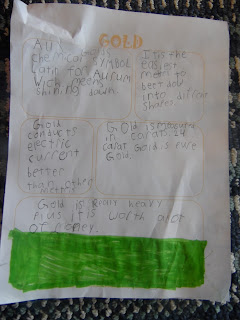 GOLD
AU
chemical symbol
Latin Too Aurum
Wich means
shining down.
It is the
Easiest
metal to
beet dow
into difrent
shapes.
Gold
conducts
electric
current
better
than other
metals
Gold is measured
in carat. 24
carat Gold is
Gold.
Gold is Realy heavy
Plus it is worth a lot
of money.